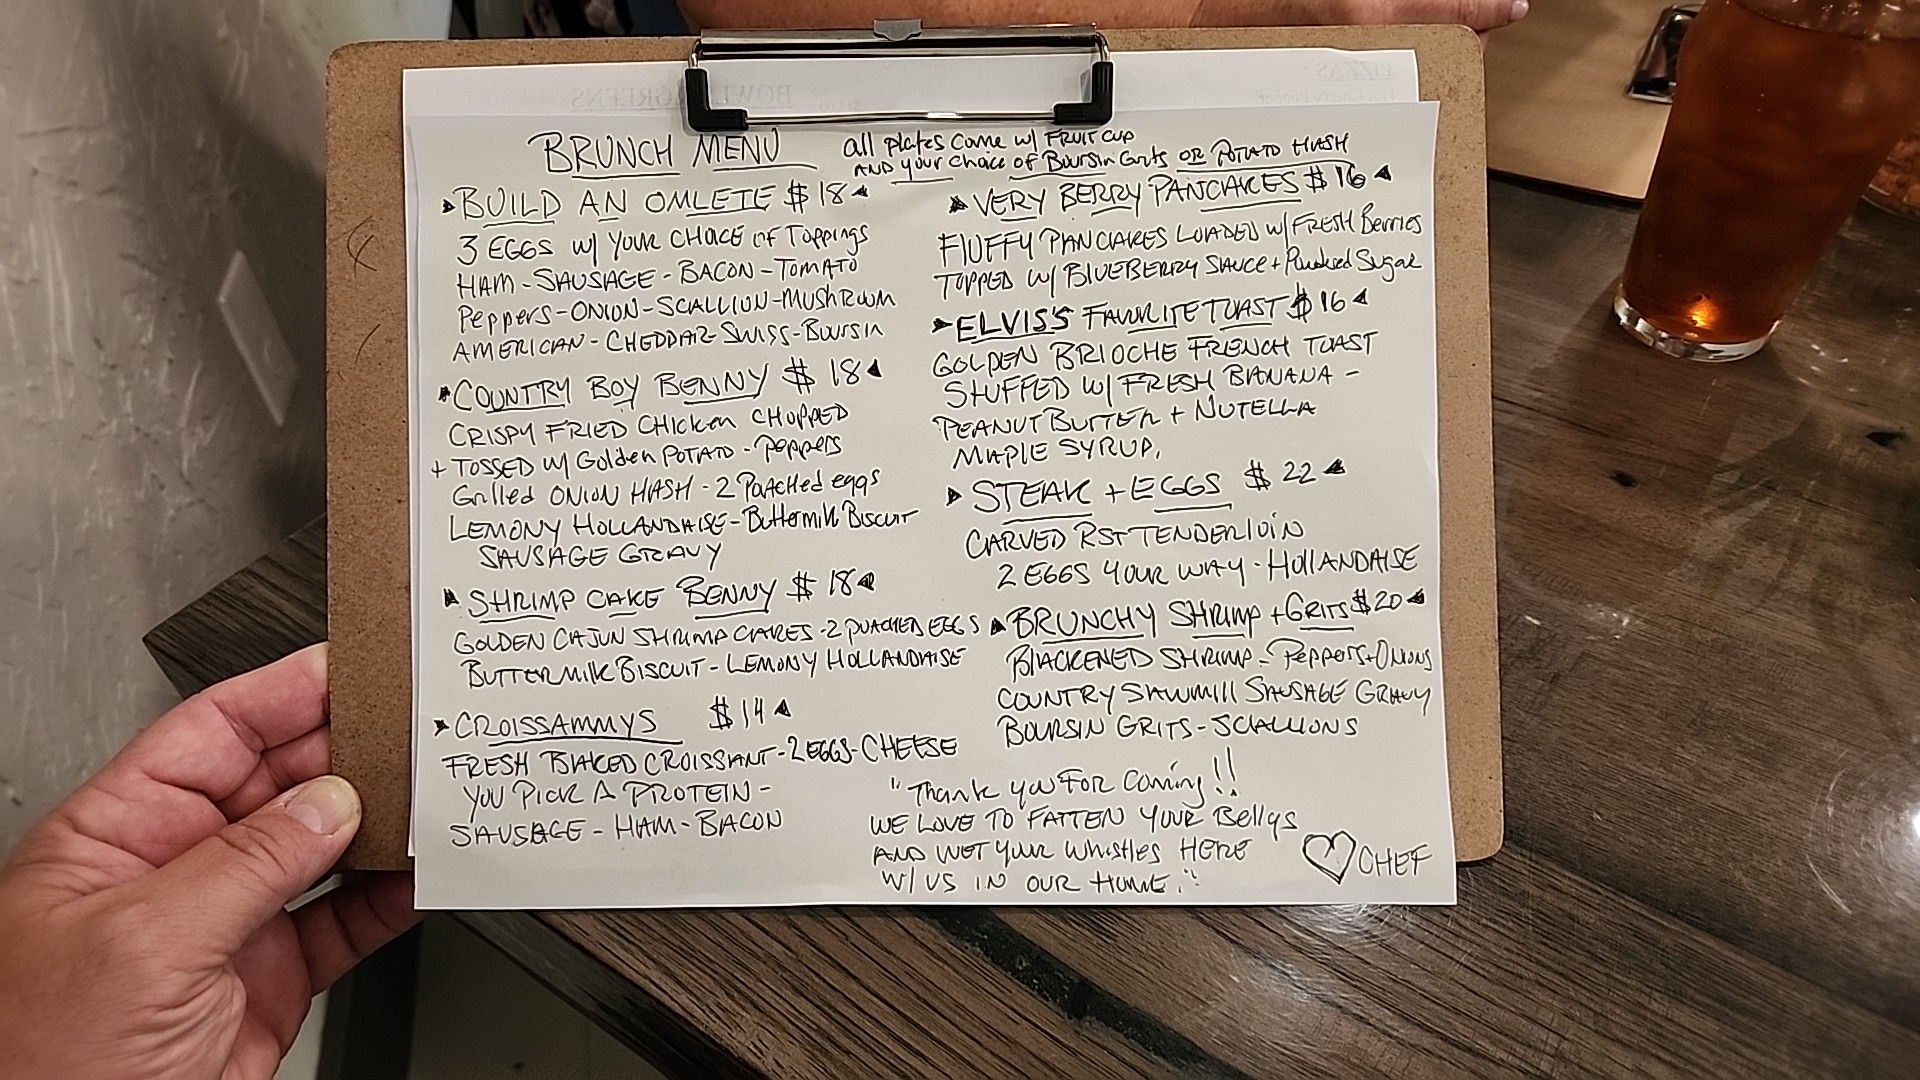 BRUNCH MENU
all plates come w/ FRUIT CUP
AND your choice of Boursin Grits OR POTATO HASH
BUILD AN OMLETE $18
3 EGGS w/ YOUR CHOICE OF Toppings
HAM - SAUSAGE - BACON - TOMATO
Peppers - ONION - SCALLION - MUSHROOM
AMERICAN - CHEDDAR - SWISS - BOURSIN
COUNTRY BOY BENNY $18
CRISPY FRIED CHICKEN CHOPPED
+ TOSSED W/ Golden POTATO - Peppers
Grilled ONION HASH - 2 Poached eggs
LEMONY HOLLANDAISE - Buttermilk Biscuit
SAUSAGE GRAVY
SHRIMP CAKE BENNY $18
GOLDEN CAJUN SHRIMP CAKES - 2 POACHED EGGS
BUTTERMILK BISCUIT - LEMONY HOLLANDAISE
CROISSAMMYS $14
FRESH BAKED CROISSANT - 2 EGGS - CHEESE
YOU PICK A PROTEIN -
SAUSAGE - HAM - BACON
VERY BERRY PANCAKES $16
FLUFFY PANCAKES LOADED W/ FRESH Berries
TOPPED W/ BLUEBERRY SAUCE + Powdered Sugar
ELVIS'S FAVORITE TOAST $16
GOLDEN BRIOCHE FRENCH TOAST
STUFFED W/ FRESH BANANA -
PEANUT BUTTER + NUTELLA
MAPLE SYRUP.
STEAK + EGGS $22
CARVED RST TENDERLOIN
2 EGGS YOUR WAY - HOLLANDAISE
BRUNCHY SHRIMP + GRITS $20
BLACKENED SHRIMP - Peppers + Onions
COUNTRY SAWMILL SAUSAGE GRAVY
BOURSIN GRITS - SCALLIONS
"Thank you For Coming!!
WE LOVE TO FATTEN YOUR Bellys
AND WET YOUR Whistles HERE
W/ US IN OUR HOME."
CHEF